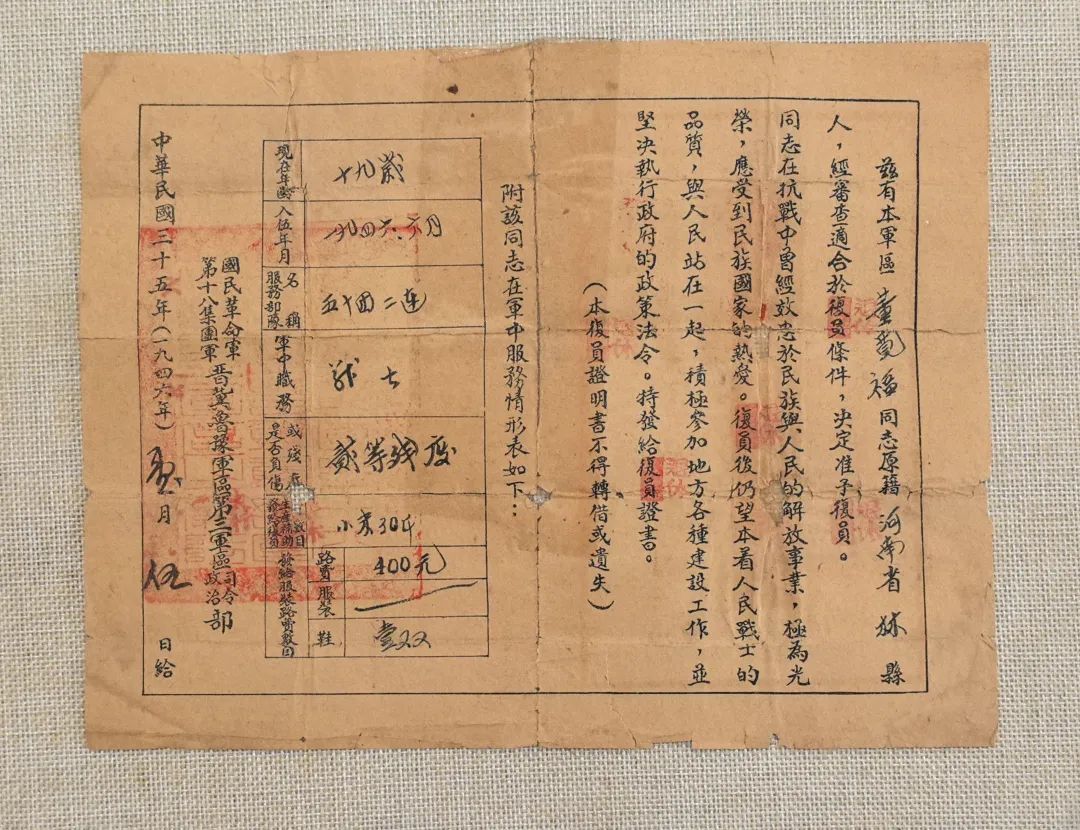 茲有本軍區 同志原籍河南省林縣
人，經審查適合於復員條件，決定准予復員。
同志在抗戰中曾經效忠於民族與人民的解放事業，極為光
榮，應受到民族國家的熱愛。復員後仍望本着人民戰士的
品質，與人民站在一起，積極參加地方各種建設工作，並
堅決執行政府的政策法令。特發給復員證書。
（本復員證明書不得轉借或遺失）
附該同志在軍中服務情形表如下：
現在年齡 十九歲
入伍年月
服務部隊名稱 五十四二連
軍中職務 战士
是否負傷或殘廢 貳等残廢
小米30斤
發給服裝路費數目
路費 400元
服裝
鞋 壹双
國民革命軍
第十八集團軍
晉冀魯豫軍區第三軍區司令政治部
中華民國三十五年（一九四六年） 月伍日給